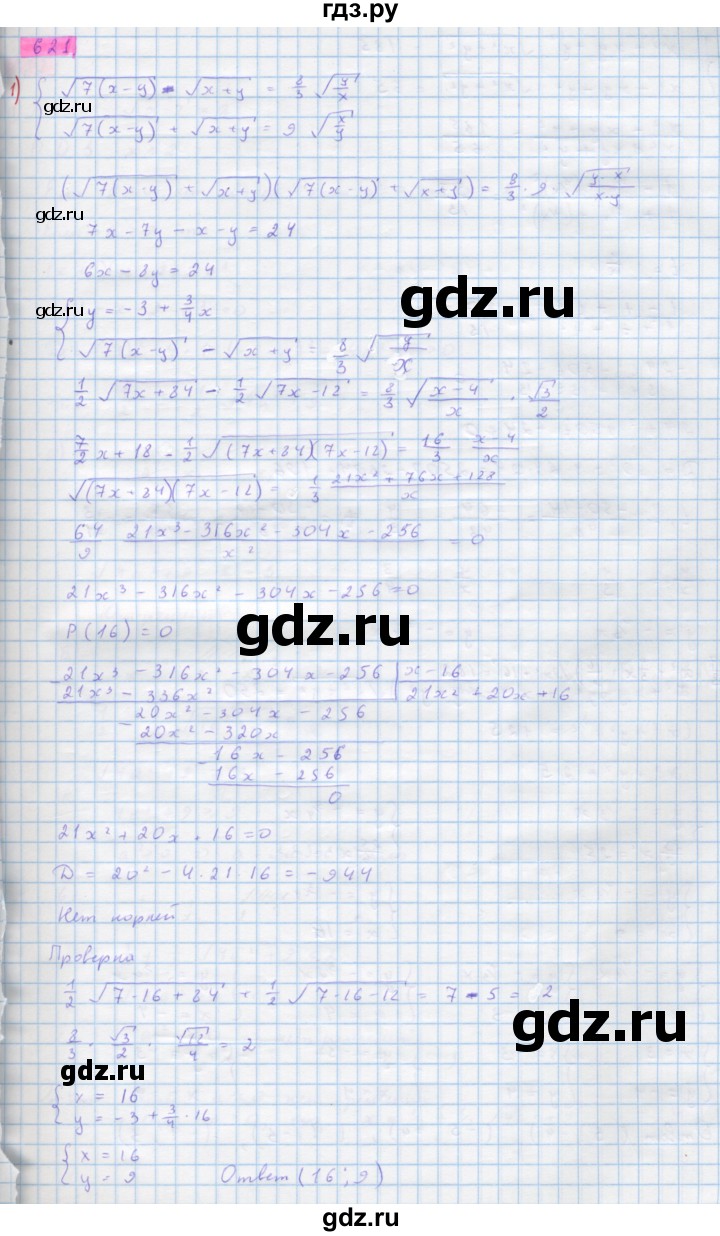 гдз.ру
621
1) { √7(x-y) - √x+y = 8/3 √y/x
gdz.ru
√7(x-y) + √x+y = 9 √x/y
(√7(x-y) + √x+y)(√7(x-y) + √x+y) = 8/3 · 9 · √y·x/x·y
gdz.ru
7x - 7y - x - y = 24
6x - 8y = 24
gdz.ru
{ y = -3 + 3/4 x
gdz.ru
√7(x-y) - √x+y = 8/3 √y/x
1/2 √7x+84 - 1/2 √7x-12 = 8/3 √x-4/x · √3/2
7/2 x + 18 - 1/2 √(7x+84)(7x-12) = 16/3 x-4/x
√(7x+84)(7x-12) = 1/3 21x²+76x+128/x
64/9 21x³-316x²-304x-256/x² = 0
21x³ - 316x² - 304x - 256 = 0
P(16) = 0
gdz.ru
- 21x³ - 316x² - 304x - 256 | x-16
21x³ - 336x² 21x² + 20x + 16
- 20x² - 304x - 256
20x² - 320x
- 16x - 256
16x - 256
0
21x² + 20x + 16 = 0
gdz.ru
D = 20² - 4·21·16 = -944
Нет корней
Проверка
1/2 √7·16+84 + 1/2 √7·16-12 = 7 - 5 = 2
gdz.ru
8/3 · √3/2 · √12/4 = 2
gdz.ru
{ x = 16
y = -3 + 3/4 · 16
{ x = 16
y = 9 Ответ (16; 9)
gdz.ru